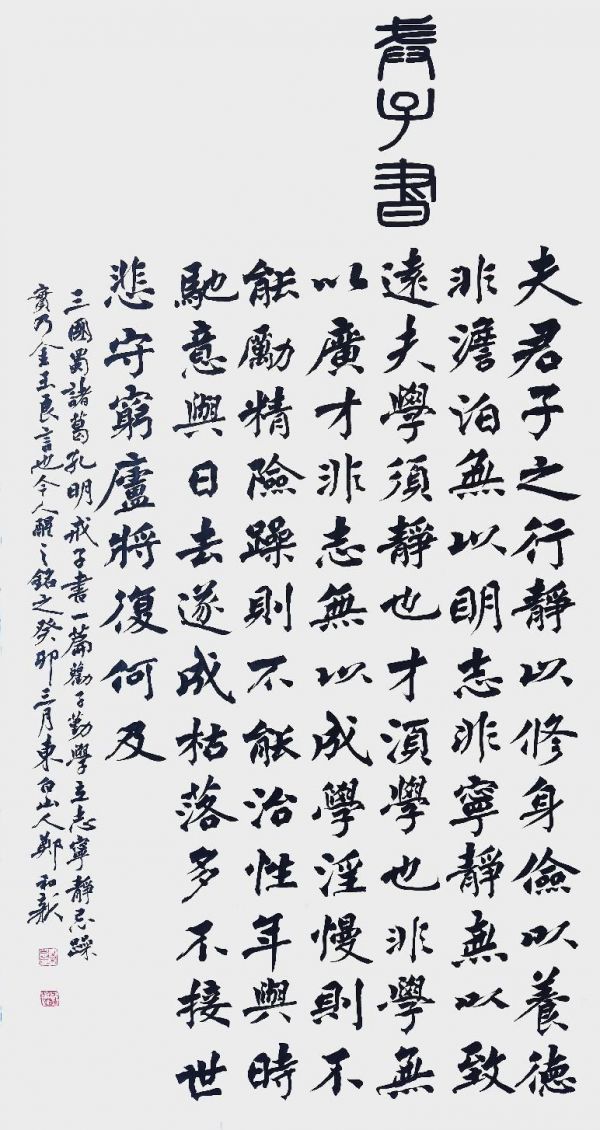 戒子書
夫君子之行靜以修身儉以養德
非澹泊無以明志非寧靜無以致
遠夫學須靜也才須學也非學無
以廣才非志無以成學淫慢則不
能勵精險躁則不能治性年與時
馳意與日去遂成枯落多不接世
悲守窮廬將復何及
三國蜀諸葛孔明戒子書一篇勸子勤學立志寧靜忌躁
實乃金玉良言也今人醒之銘之癸卯三月東白山人鄭和新